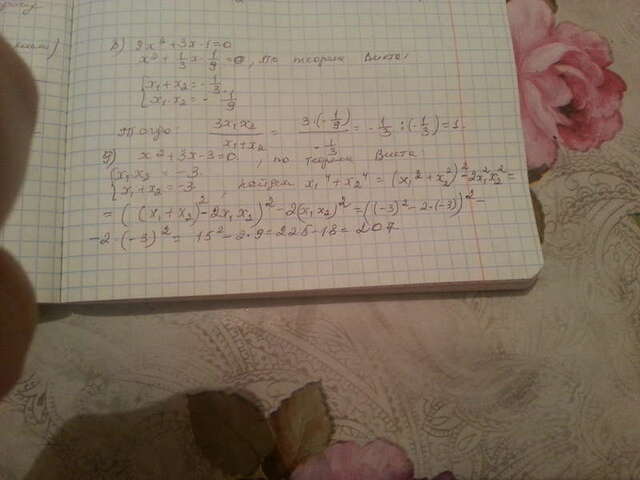 в) 9x² + 3x - 1 = 0
x² + 1/3 x - 1/9 = 0, По теореме Виета:
{x₁ + x₂ = - 1/3
{x₁ · x₂ = - 1/9
Тогда: 3x₁x₂/(x₁+x₂) = 3·(-1/9)/(-1/3) = - 1/3 : (-1/3) = 1.
g) x² + 3x - 3 = 0, по теореме Виета
{x₁x₂ = -3
{x₁ + x₂ = -3, найдем x₁⁴ + x₂⁴ = (x₁² + x₂²)² - 2x₁²x₂² =
= ((x₁ + x₂)² - 2x₁x₂)² - 2(x₁x₂)² = ((-3)² - 2·(-3))² -
- 2·(-3)² = 15² - 2·9 = 225 - 18 = 207